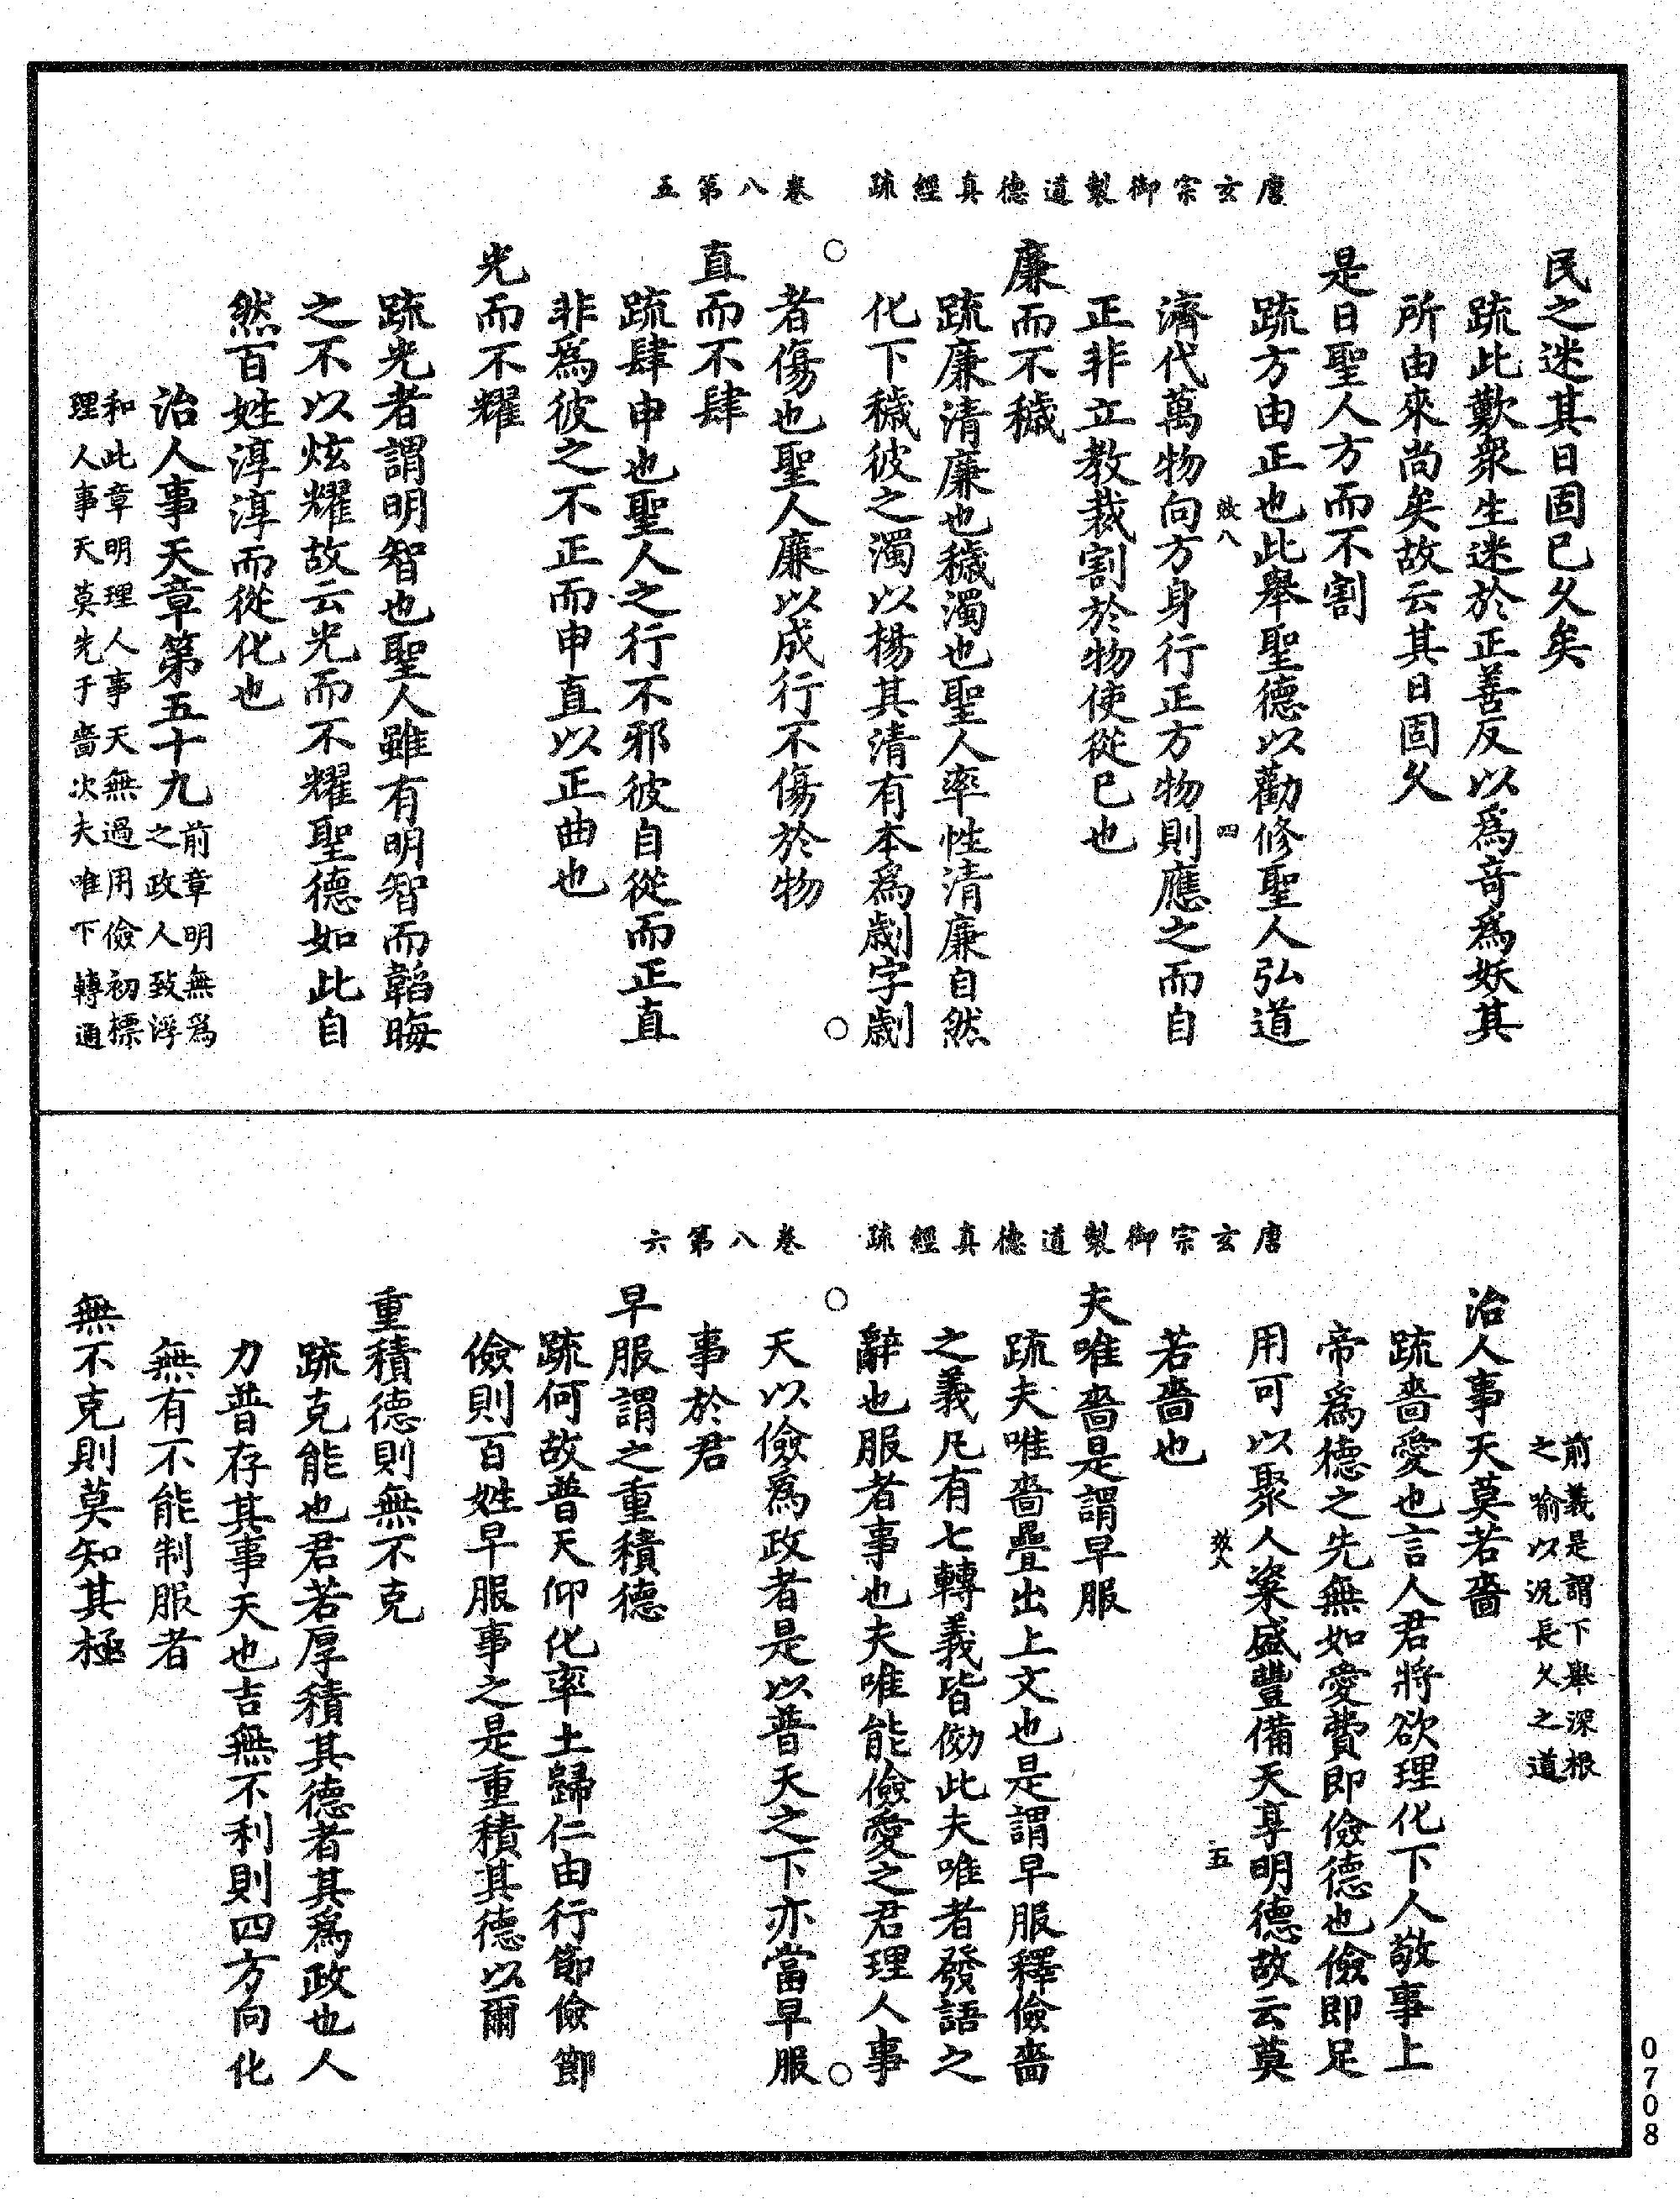 唐玄宗御製道德真經疏　卷八第五
民之迷其日固已久矣
疏此歎衆生迷於正善反以爲奇爲妖其
所由來尚矣故云其日固久
是曰聖人方而不割
疏方由正也此舉聖德以勸修聖人弘道
效八　四
濟代萬物向方身行正方物則應之而自
正非立教裁割於物使從已也
廉而不穢
疏廉清廉也穢濁也聖人率性清廉自然
化下穢彼之濁以揚其清有本爲劌字劌
者傷也聖人廉以成行不傷於物
直而不肆
疏肆申也聖人之行不邪彼自從而正直
非爲彼之不正而申直以正曲也
光而不耀
疏光者謂明智也聖人雖有明智而韜晦
之不以炫耀故云光而不耀聖德如此自
然百姓淳淳而從化也
治人事天章第五十九
前章明無爲
之政人致淳
和此章明理人事天無過用儉初標
理人事天莫先于嗇次夫唯下轉通
唐玄宗御製道德真經疏　卷八第六
前義是謂下舉深根
之喻以況長久之道
治人事天莫若嗇
疏嗇愛也言人君將欲理化下人敬事上
帝爲德之先無如愛費即儉德也儉即足
用可以聚人粢盛豐備天享明德故云莫
效八　五
若嗇也
夫唯嗇是謂早服
疏夫唯嗇疊出上文也是謂早服釋儉嗇
之義凡有七轉義皆倣此夫唯者發語之
辭也服者事也夫唯能儉愛之君理人事
天以儉爲政者是以普天之下亦當早服
事於君
早服謂之重積德
疏何故普天仰化率土歸仁由行節儉節
儉則百姓早服事之是重積其德以爾
重積德則無不克
疏克能也君若厚積其德者其爲政也人
力普存其事天也吉無不利則四方向化
無有不能制服者
無不克則莫知其極
0708